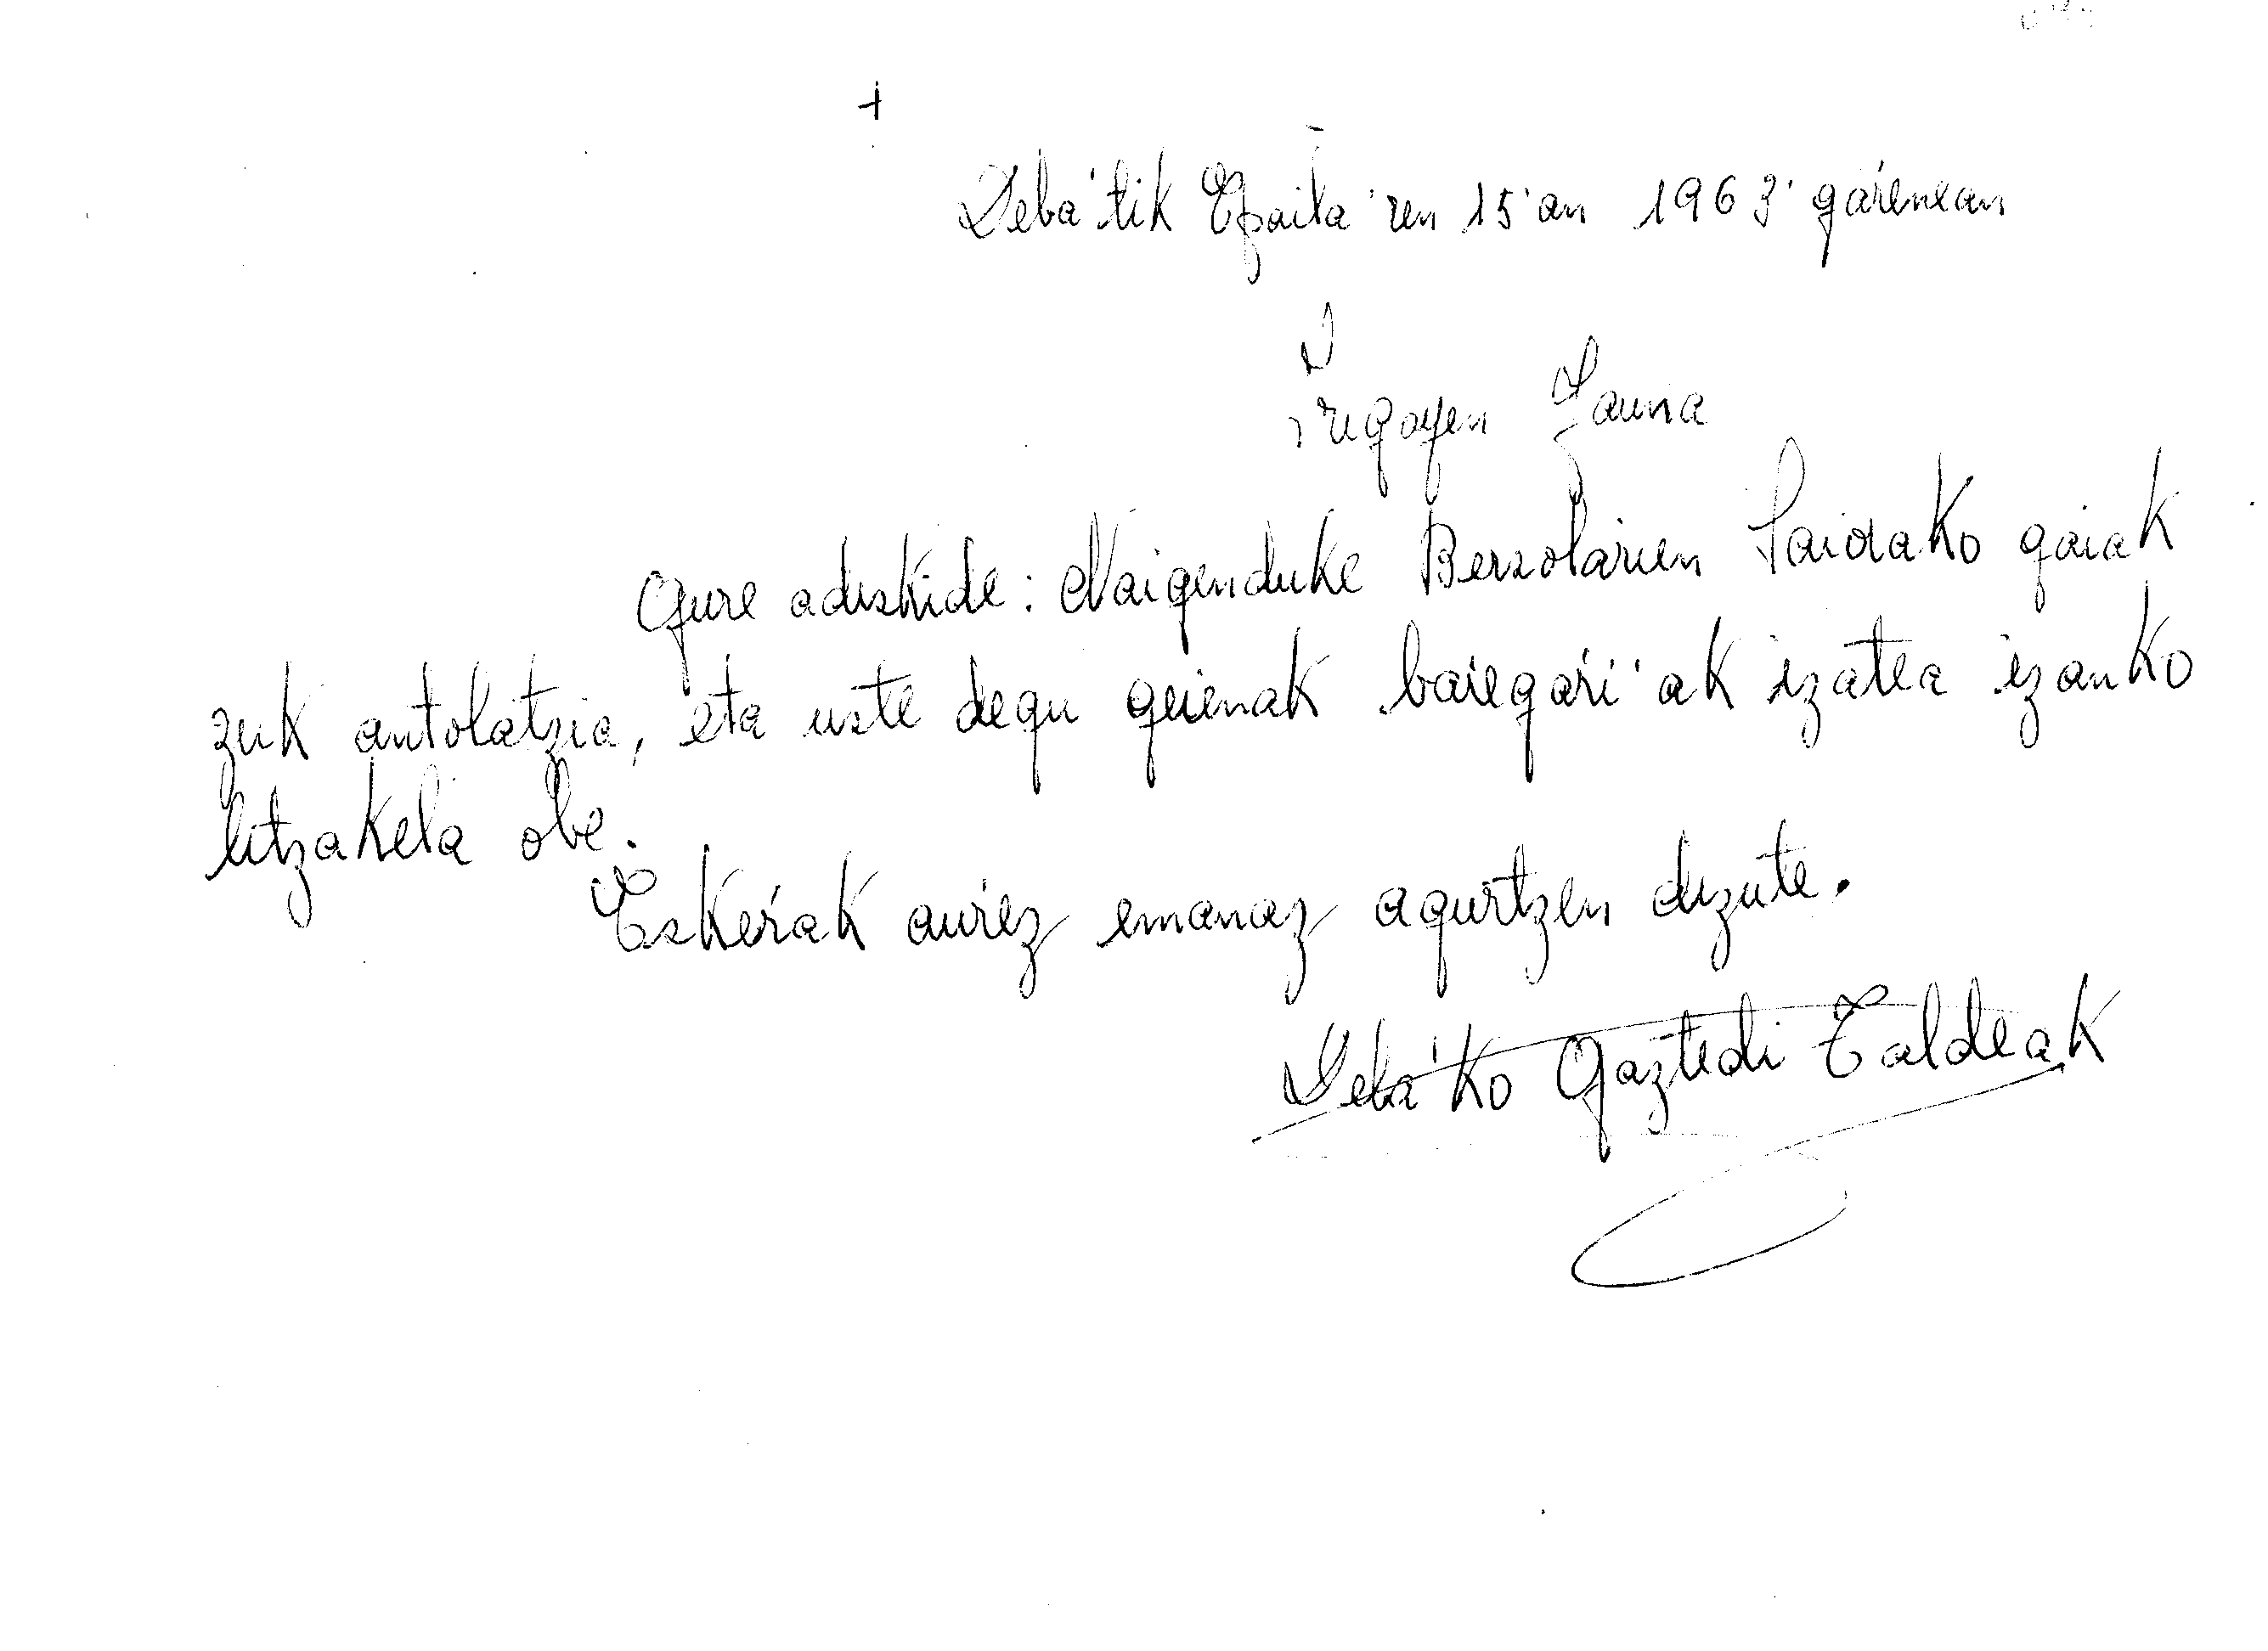 +
Deba'tik Epaila'ren 15'an 1963'gaŕenean
Irigoyen Jauna
Gure adiskide: Naigenduke Bersolaŕien Saiorako gaiak
zuk antolatzia, eta uste degu geienak baŕegaŕi'ak izatea izanko
litzakela obe.
Eskeŕak auŕez emanaz agurtzen dizute.
Deba'ko Gaztedi Taldeak